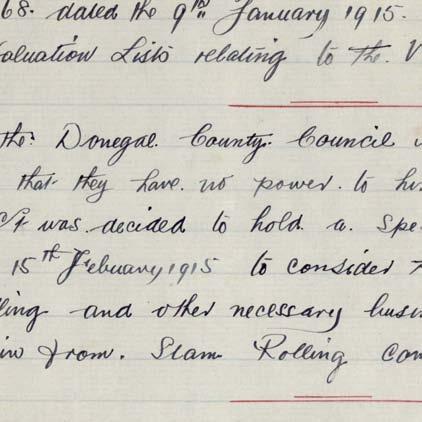 68. dated the 9th January 1915.
Valuation Lists relating to the V
the Donegal County Council
that they have no power to
It was decided to hold a Spe
15th February 1915 to consider
ling and other necessary busi
from. Steam Rolling com